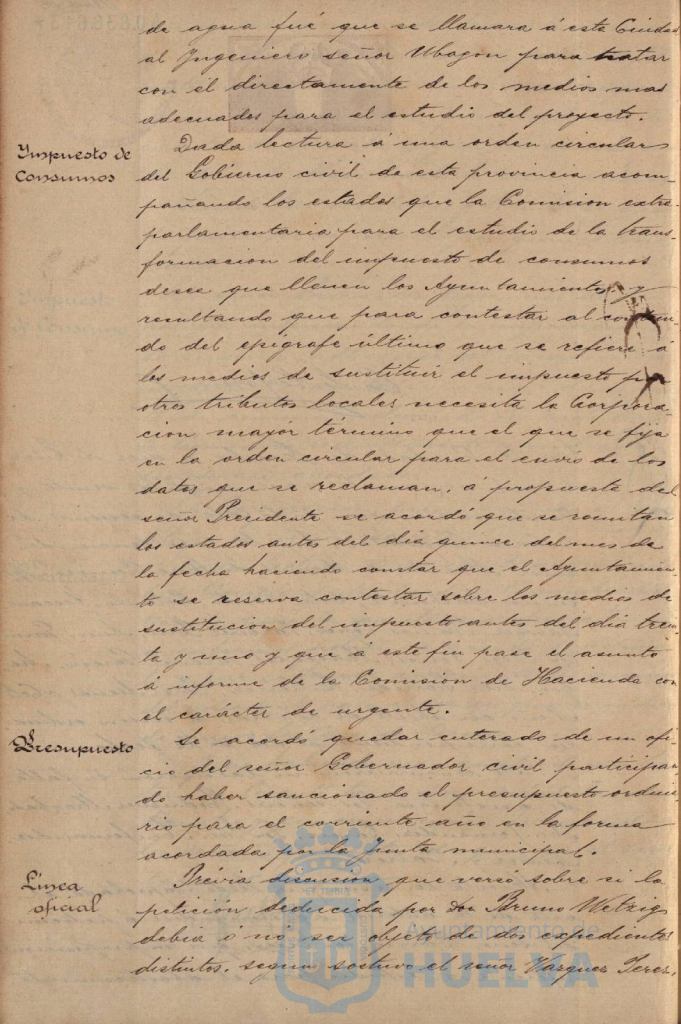 de agua fué que se llamara á esta Ciudad
al Ingeniero señor Ubagon para tratar
con él directamente de los medios mas
adecuados para el estudio del proyecto.
Impuesto de
Consumos
Dada lectura á una orden circular
del Gobierno civil de esta provincia acom-
pañando los estados que la Comision extra-
parlamentaria para el estudio de la trans-
formacion del impuesto de consumos
desea que llenen los Ayuntamientos; y
resultando que para contestar al conteni-
do del epígrafe último que se refiere á
los medios de sustituir el impuesto por
otros tributos locales necesita la Corpora-
cion mayor término que el que se fija
en la orden circular para el envio de los
datos que se reclaman, á propuesta del
señor Presidente se acordó que se remitan
los estados antes del dia quince del mes de
la fecha haciendo constar que el Ayuntamien-
to se reserva contestar sobre los medios de
sustitucion del impuesto antes del dia trein-
ta y uno y que á este fin pase el asunto
á informe de la Comision de Hacienda con
el carácter de urgente.
Presupuesto
Se acordó quedar enterado de un ofi-
cio del señor Gobernador civil participan-
do haber sancionado el presupuesto ordina-
rio para el corriente año en la forma
acordada por la Junta municipal.
Línea
oficial
Prévia discusion que versó sobre si la
peticion deducida por Don Bruno Wetzig
debia ó nó ser objeto de dos expedientes
distintos, segun sostuvo el señor Vazquez Perez,
Ayuntamiento de
HUELVA